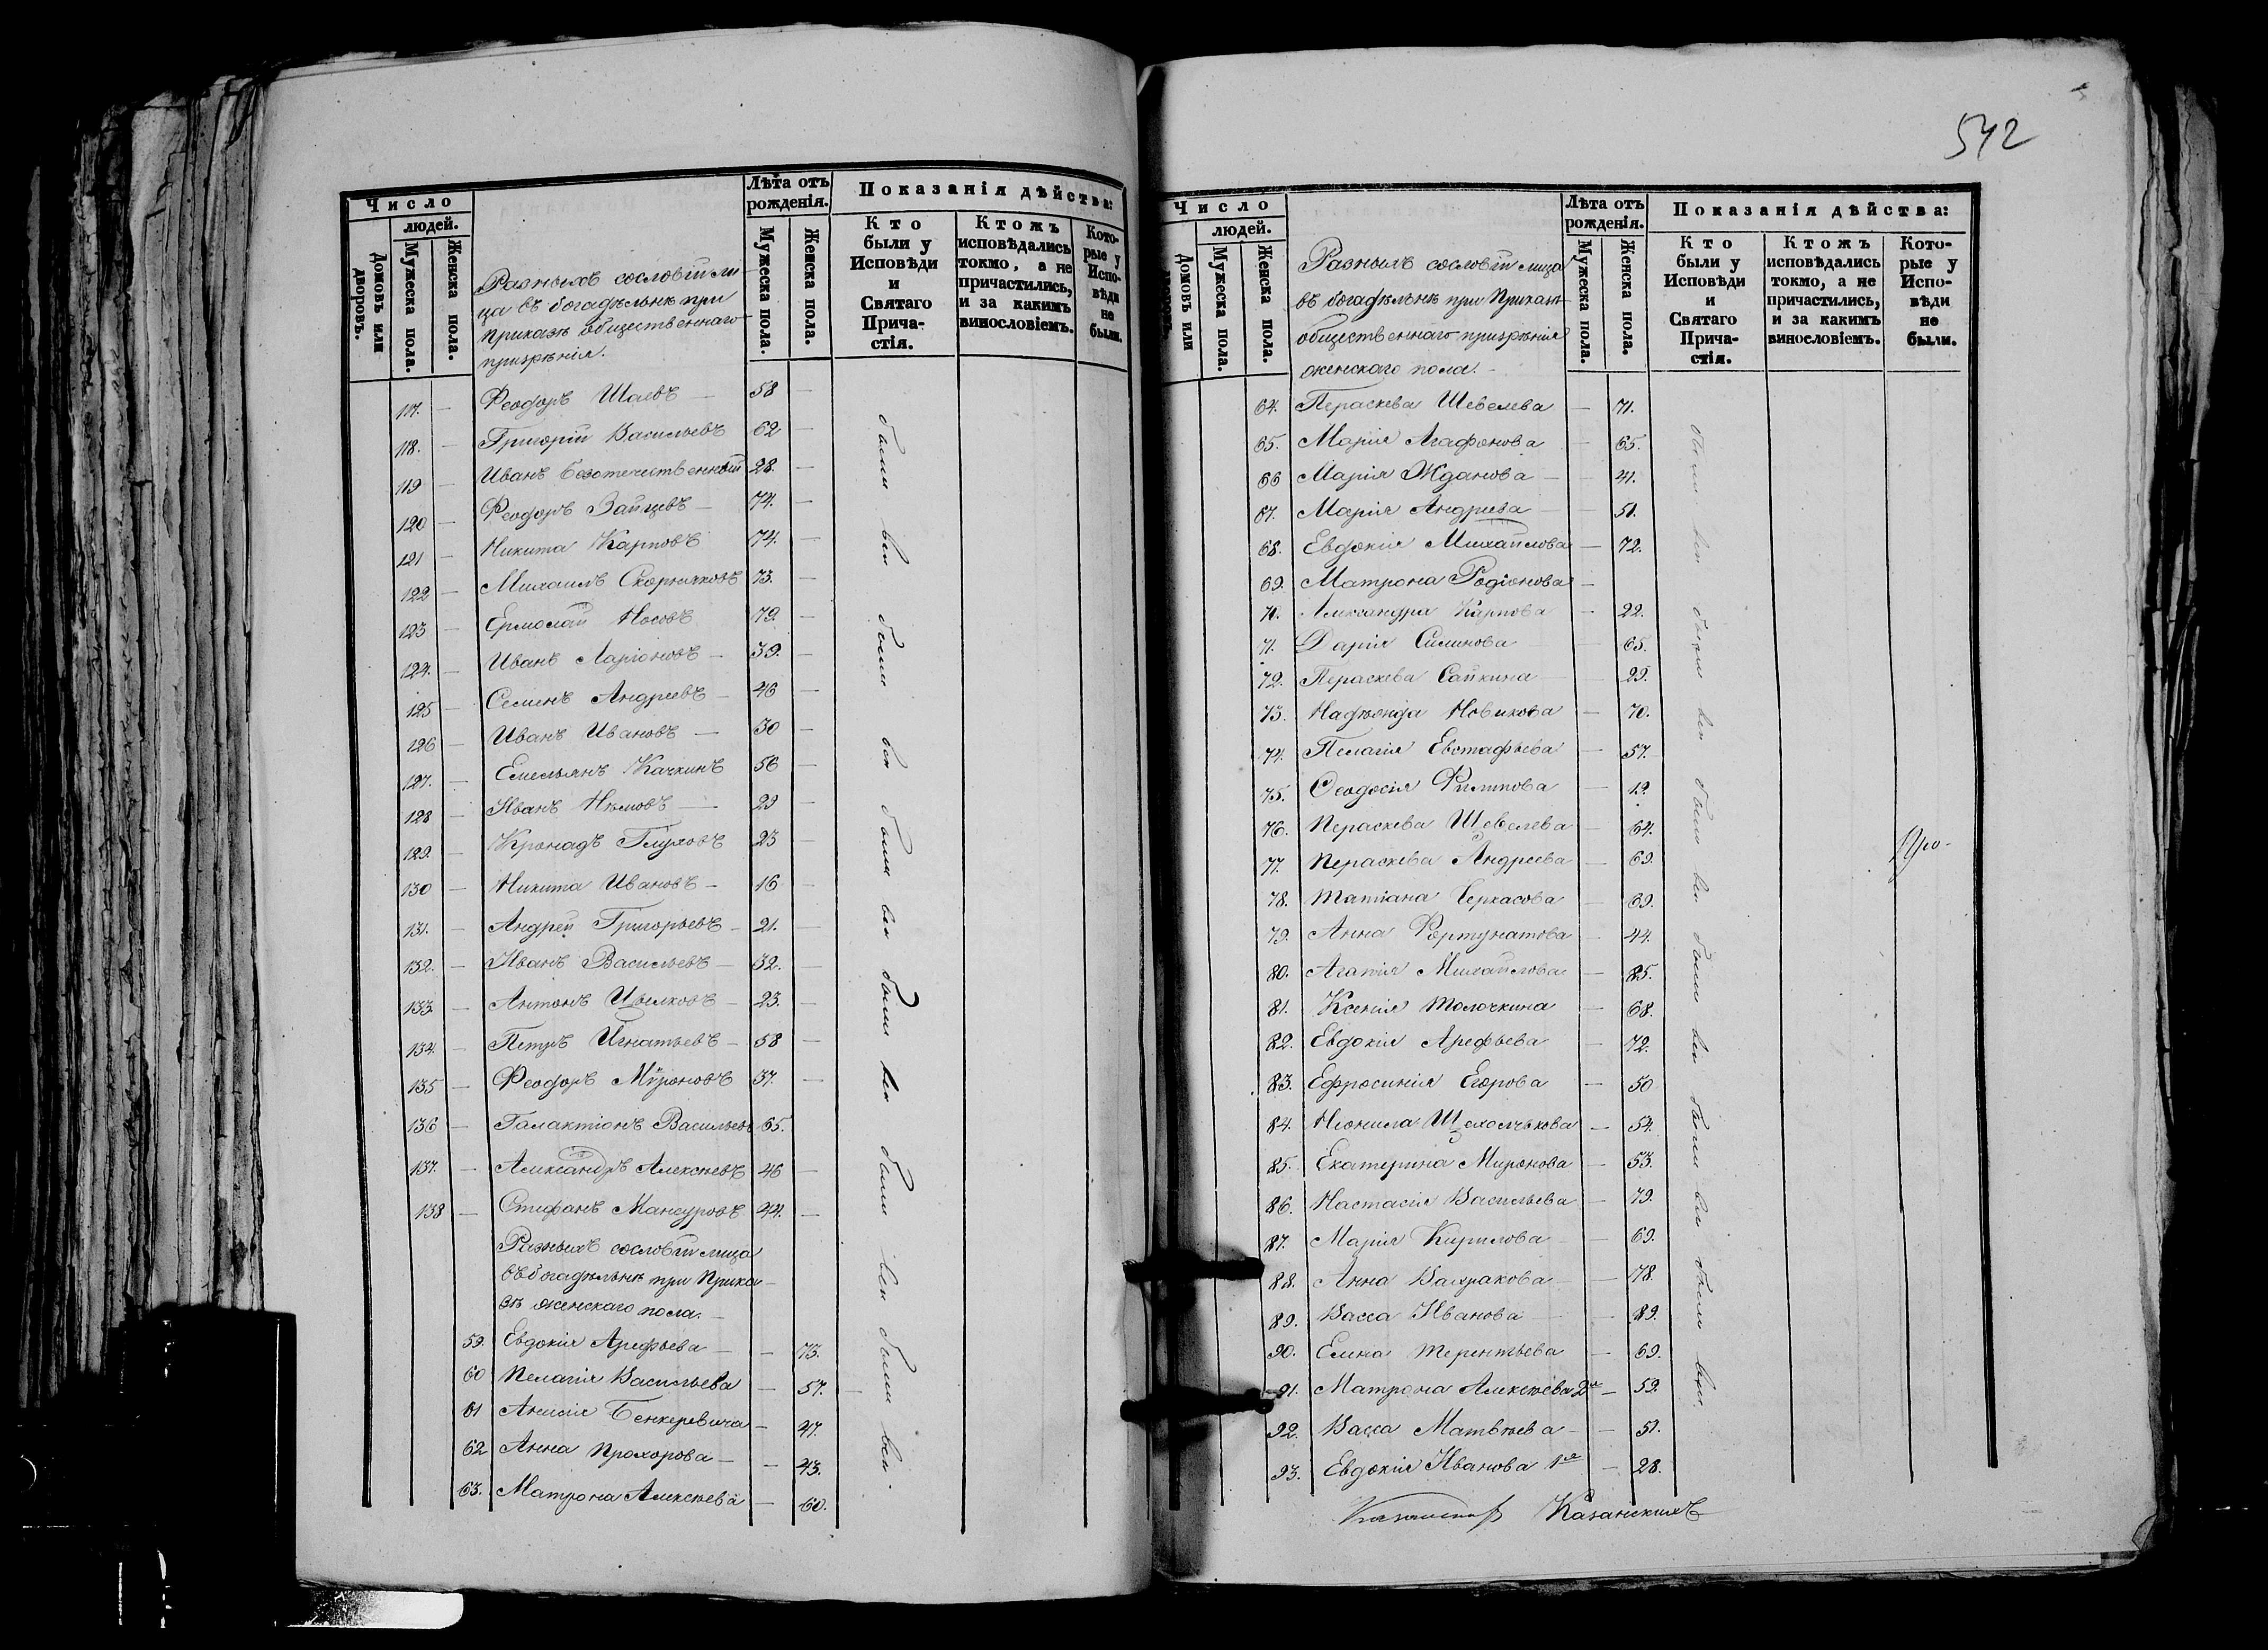 542
Число
людей.
Домовъ или дворовъ.
Мужеска пола.
Женска пола.
Разныхъ сословій ли-
ца въ богадѣльнѣ при
Приказѣ общественнаго
призрѣнія.
Лѣта отъ рожденія.
Мужеска пола.
Женска пола.
Показанія дѣйства:
Кто были у Исповѣди и Святаго Причастія.
Ктожъ исповѣдались токмо, а не причастились, и за какимъ винословіемъ.
Которые у Исповѣди не были.
117. — Феодоръ Шаевъ — 58 —
118. — Григорій Васильевъ 62 —
119 — Иванъ Безотечественный 28. —
120 — Феодоръ Зайцевъ — 74. —
121 — Никита Карповъ 74. —
122 — Михаилъ Скорняковъ 73. —
123 — Ермолай Носовъ 79. —
124. — Иванъ Ларіоновъ — 39. —
125 — Семенъ Андреевъ — 46 —
126 — Иванъ Ивановъ — 30 —
127. — Емельянъ Качкинъ 56 —
128 — Иванъ Нѣмовъ — 29 —
129. — Кронидъ Глуховъ 23 —
130 — Никита Ивановъ — 16 —
131. — Андрей Григорьевъ — 21. —
132. — Иванъ Васильевъ — 32. —
133 — Антонъ Цвелковъ — 23. —
134. — Петръ Игнатьевъ — 58 —
135 — Феодоръ Мѵроновъ 37. —
136 — Галактіонъ Васильевъ 65.
137. — Александръ Алексѣевъ 46 —
138 — Стефанъ Мансуровъ 44. —
Разныхъ сословій лица
въ богадѣльнѣ при Прика-
зѣ женскаго пола. —
59. Евдокія Арефьева — — 73.
60 Пелагія Васильева — 57.
61 Анисія Бенкеревича — 47.
62 Анна Прохорова — — 43.
63. Матрона Алексѣева — 60.
были вси были вси были вси были вси были вси были вси.
Число
людей.
Домовъ или дворовъ.
Мужеска пола.
Женска пола.
Разныхъ сословій лица
въ богадѣльнѣ при Приказѣ
общественнаго призрѣнія
женскаго пола. —
Лѣта отъ рожденія.
Мужеска пола.
Женска пола.
Показанія дѣйства:
Кто были у Исповѣди и Святаго Причастія.
Ктожъ исповѣдались токмо, а не причастились, и за какимъ винословіемъ.
Которые у Исповѣди не были.
64. Параскева Шевелева — 71.
65. Марія Агафонова — 65.
66 Марія Жданова — 41.
67. Марія Андреева — 51.
68. Евдокія Михайлова — 72.
69. Матрона Родіонова —
70. Александра Карпова — 22.
71. Дарія Силинова — 65.
72. Параскева Сайкина — 29.
73. Надежда Новикова — 70.
74. Пелагія Евстафьева — 57.
75. Ѳеодосія Филипова — 19.
76. Параскева Шевелева — 64.
77. Параскева Андреева — 69.
78. Татіана Черкасова — 69.
79. Анна Фортунатова — 44.
80. Агапія Михайлова — 85.
81. Ксенія Толочкина — 68.
82. Евдокія Арефьева — 72.
83. Ефросинія Егорова — 50
84. Неонила Щелолчкова — 54.
85. Екатерина Миронова — 53.
86. Настасія Васильева — 79.
87. Марія Кирилова — 69.
88. Анна Вахракова — 78.
89. Васса Иванова — 89.
90. Елена Терентьева — 69.
91. Матрона Алексѣева 2я — 59.
92. Васса Матвѣева — 51.
93. Евдокія Иванова 1я — 28.
были вси были вси были вси были вси были вси были вси.
Казанскихъ